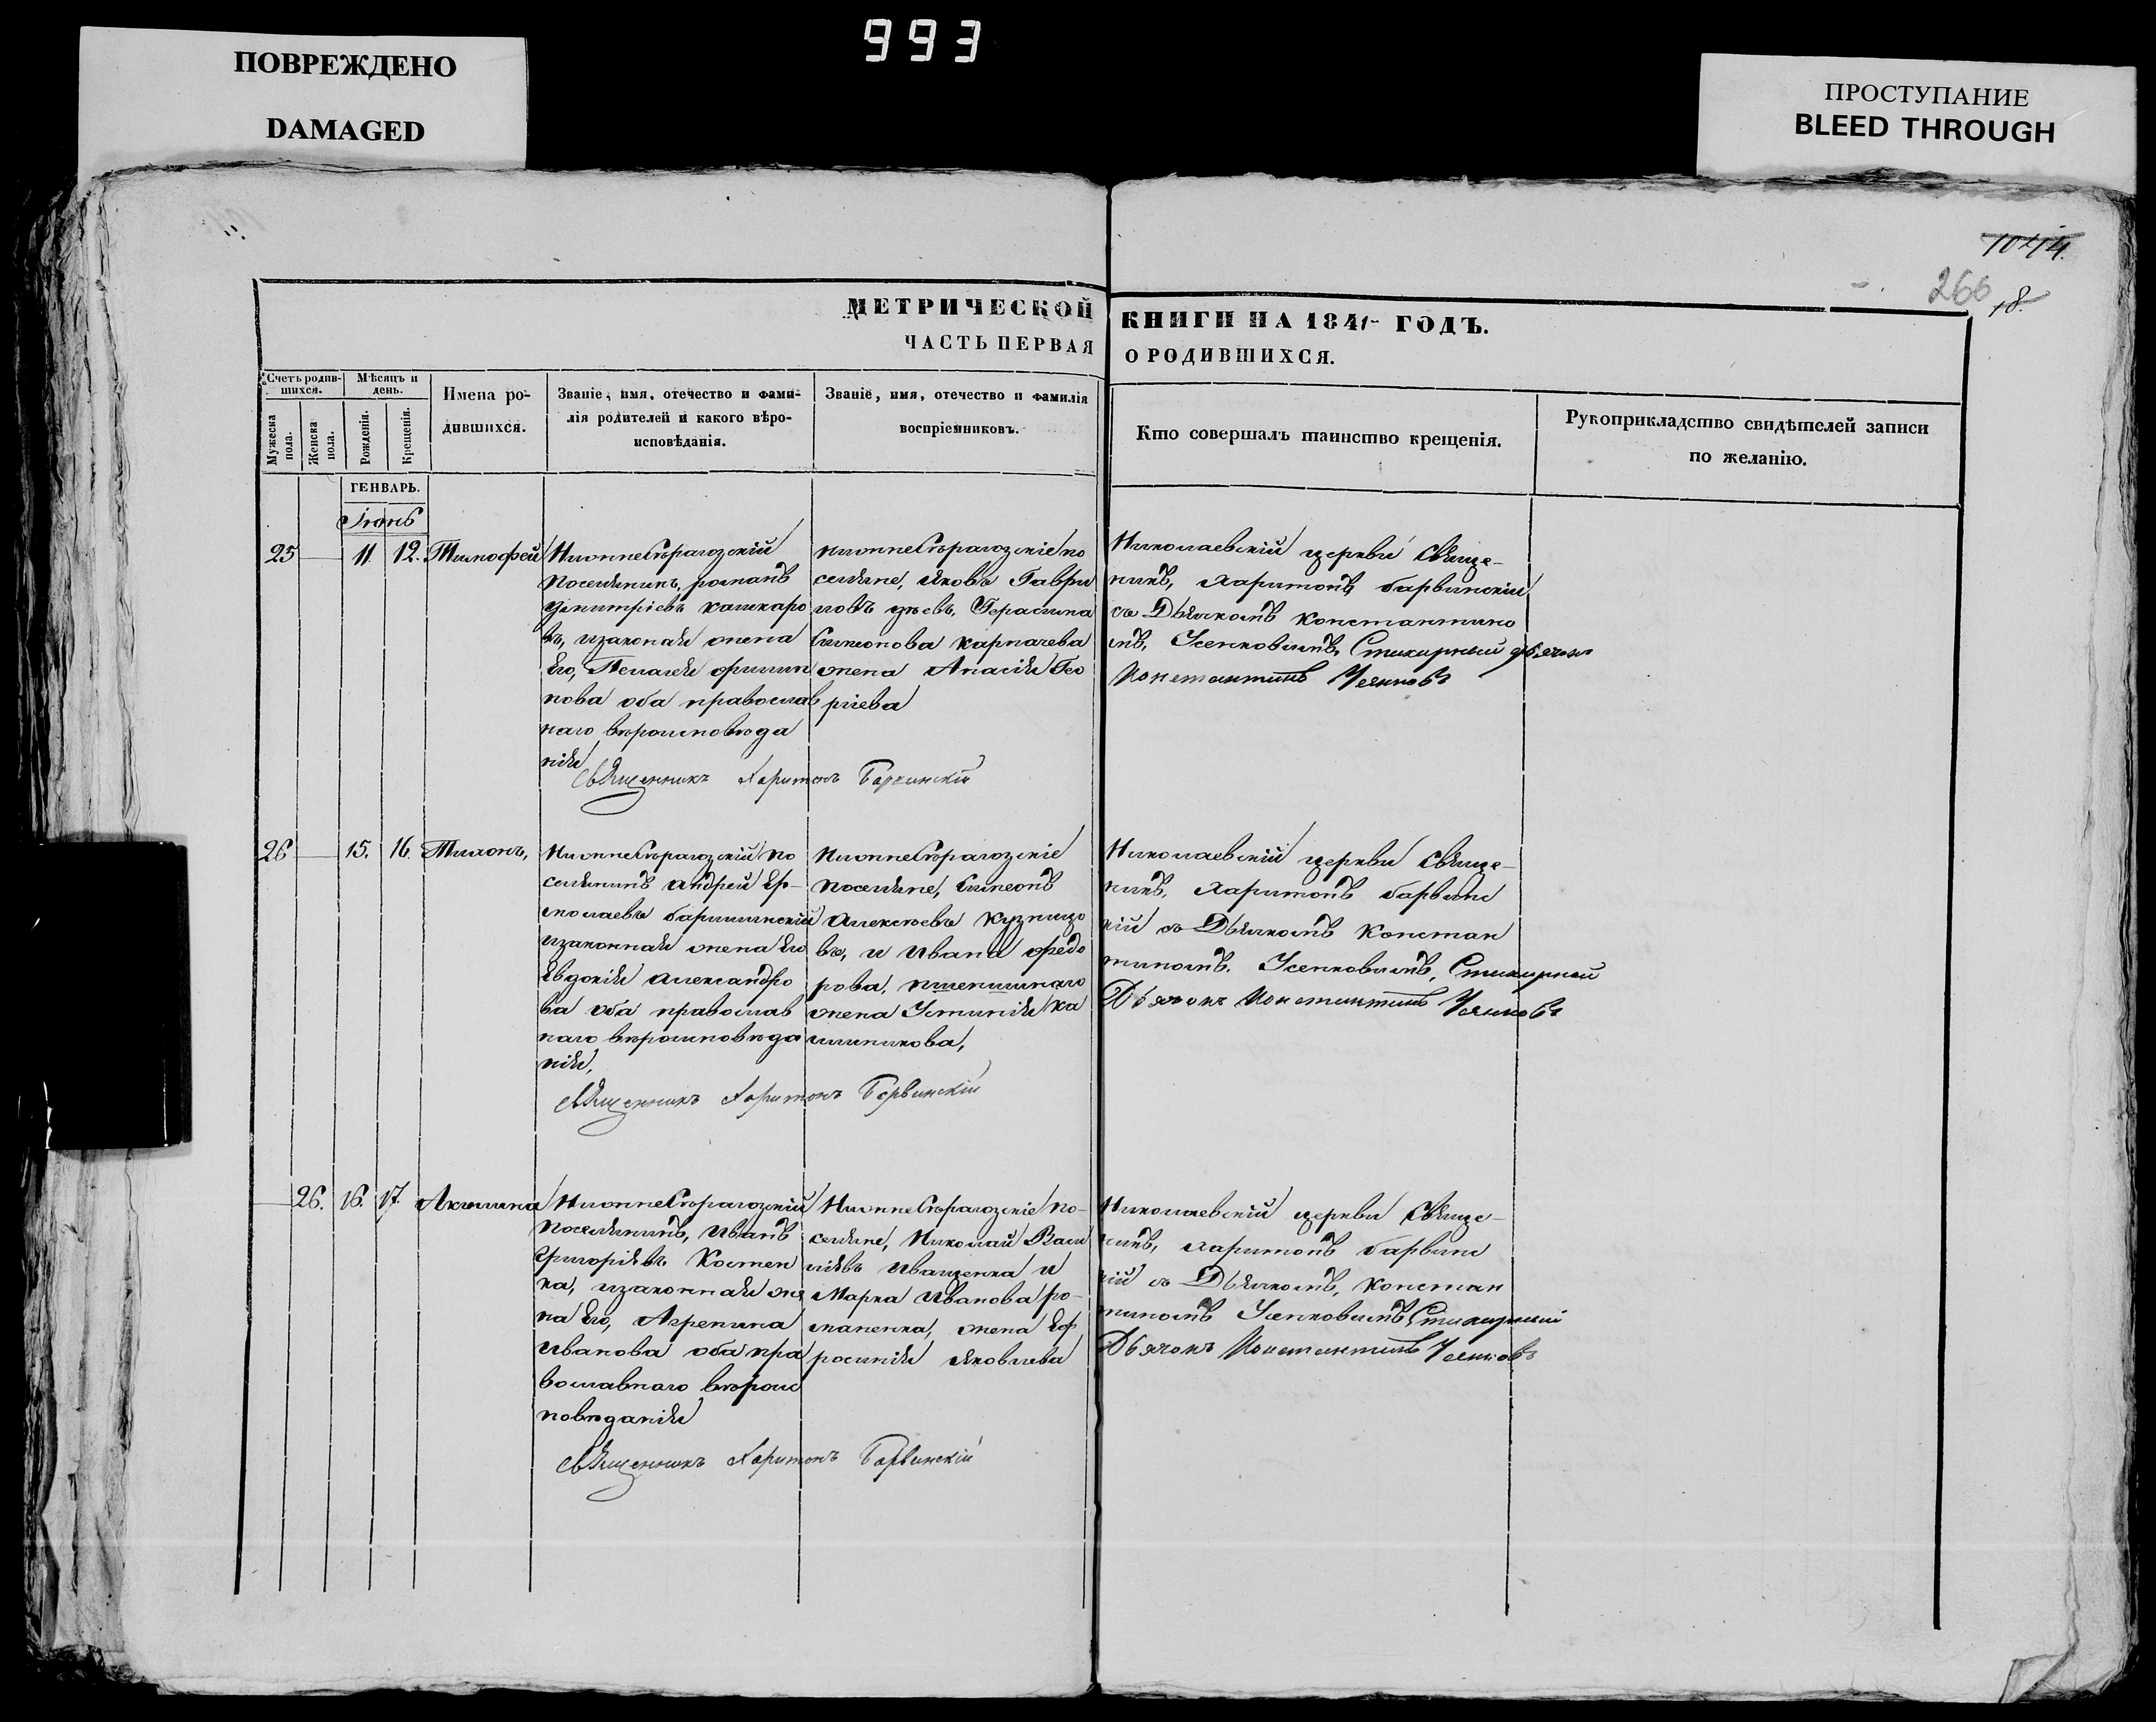 993
ПОВРЕЖДЕНО
DAMAGED
ПРОСТУПАНИЕ
BLEED THROUGH
266
18.
МЕТРИЧЕСКОЙ КНИГИ НА 1841 ГОДЪ.
ЧАСТЬ ПЕРВАЯ О РОДИВШИХСЯ.
Счетъ родившихся.
Мужеска пола.
Женска пола.
Мѣсяцъ и день.
Рожденія.
Крещенія.
Имена родившихся.
Званіе, имя, отечество и фамилія родителей и какого вѣроисповѣданія.
Званіе, имя, отечество и фамилія воспріемниковъ.
Кто совершалъ таинство крещенія.
Рукоприкладство свидѣтелей записи по желанію.
ГЕНВАРЬ.
Іюнь
25 11. 12. Тимофей
НижнеСѣрагозскій
Поселянинъ, романъ
димитріевъ кашкаро
въ, изаконая жена
Его, Пелагея филип
пова оба православ
наго вѣроисповѣда
нія
нижнеСѣрагозскіе по
селяне, яковъ Гаври
ловъ, Герасима
Симеонова карпачева
жена Анасія Гео
ргіева
Николаевскій церкви Свяще-
никъ, харитонъ барвинскій
съ Дьячкомъ константино
мъ, Усенковымъ, Стихарный дьячокъ
Константинъ Усенковъ
Священникъ Харитонъ Барвинскій
26 15. 16. Тихонъ,
НижнеСѣрагозскій по
селянинъ андрей Ер-
молаевъ
изаконная жена Его
Евдокія александро
ва оба православ
наго вѣроисповѣда
нія,
НижнеСѣрагозскіе
поселяне, Симеонъ
алексѣевъ кузнецо
въ, и ивана федо
рова, пшеничнаго
жена Устинія ка
лишникова,
Николаевскій церкви Свяще-
никъ, харитонъ барвинс
кій съ Дьячкомъ констан
тиномъ. Усенковымъ, Стихарный
Дьячокъ Константинъ Усенковъ
Священникъ Харитонъ Барвинскій
26. 16. 17. Акилина
НижнеСѣрагозскій
Поселянинъ, иванъ
григоріевъ Костен
ка, изаконная же
на Его, Агрепина
иванова оба пра
вославнаго вѣроис
повѣданія
НижнеСѣрагозскіе по-
селяне, Николай Васи
ліевъ иващенка и
Марка иванова ро-
маненка, жена Еф
росинія яковлева
Николаевскій церкви Свяще-
никъ, харитонъ барвинс
кій съ Дьячкомъ, констан
тиномъ Усенковымъ, Стихарный
Дьячокъ Константинъ Усенковъ
Священникъ Харитонъ Барвинскій